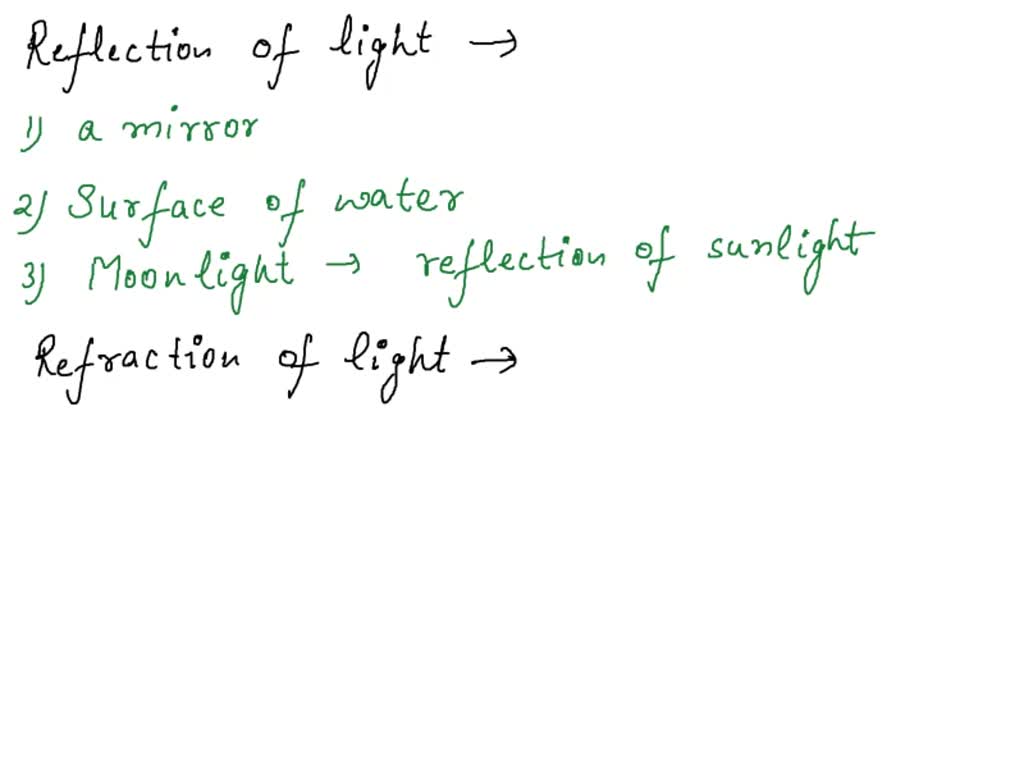 Reflection of light →
1) a mirror
2) Surface of water
3) Moonlight → reflection of sunlight
Refraction of light →